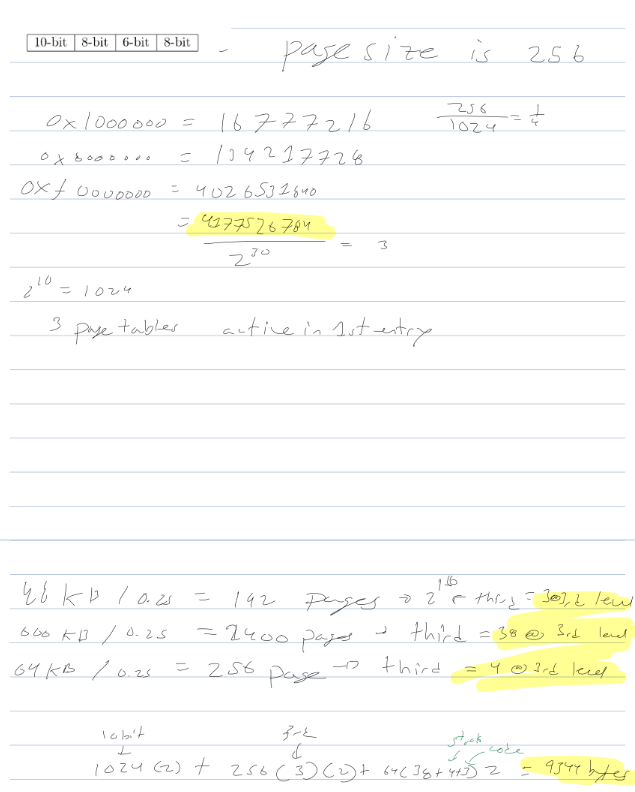 10-bit 8-bit 6-bit 8-bit - page size is 256
0x1000000 = 16777216 256/1024 = 1/4
0x8000000 = 134217728
0xf0000000 = 4026531840
= 4177526784 / 2^30 = 3
2^10 = 1024
3 page tables active in 1st entry
48 KB / 0.25 = 192 pages → 2^16 = 3@3rd level
600 KB / 0.25 = 2400 pages → third = 38 @ 3rd level
64 KB / 0.25 = 256 page → third = 4 @ 3rd level
10bit 3rd stack code
1024(2) + 256(3)(2) + 64(38+4+3)2 = 9344 bytes